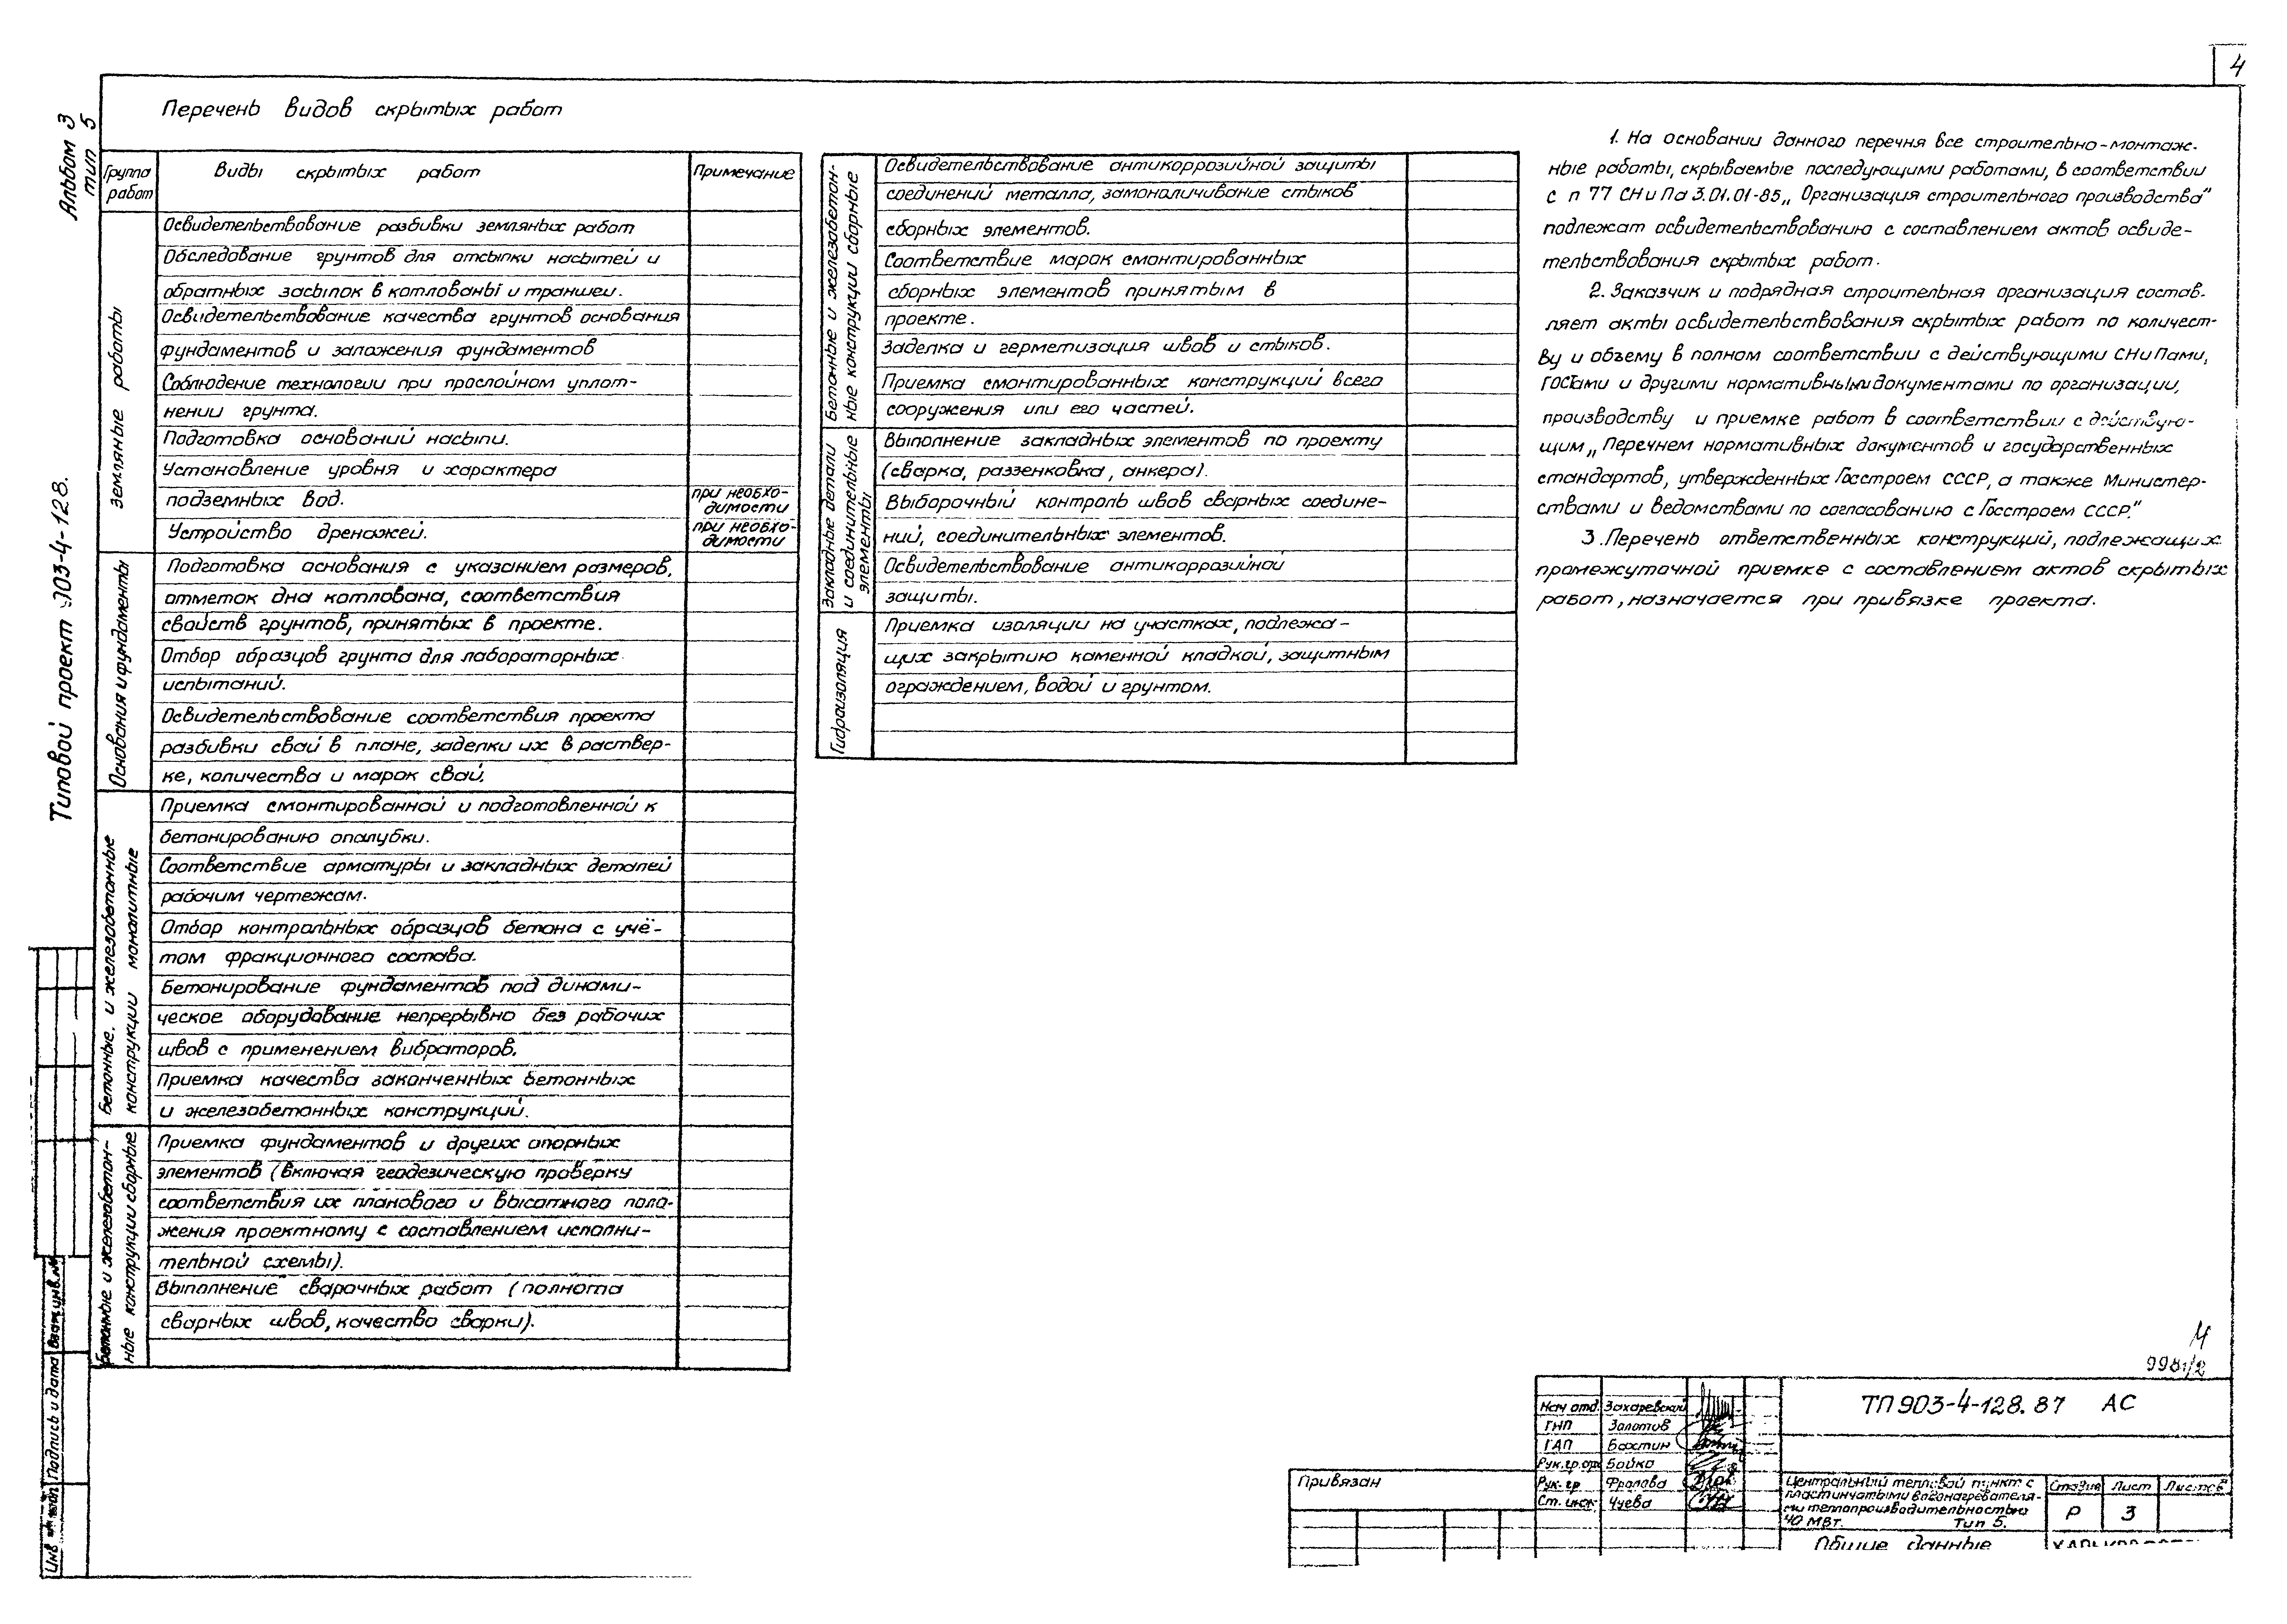 4
Альбом 3
тип 5
Типовой проект 903-4-128.
Перечень видов скрытых работ
Группа работ
Виды скрытых работ
Примечание
Земляные работы
Освидетельствование разбивки земляных работ
Обследование грунтов для отсыпки насыпей и
обратных засыпок в котлованы и траншеи.
Освидетельствование качества грунтов основания
фундаментов и заложения фундаментов
Соблюдение технологии при прослойном уплот-
нении грунта.
Подготовка оснований насыпи.
Установление уровня и характера
подземных вод.
при необхо-
димости
Устройство дренажей.
при необхо-
димости
Основания и фундаменты
Подготовка основания с указанием размеров,
отметок дна котлована, соответствия
свойств грунтов, принятых в проекте.
Отбор образцов грунта для лабораторных
испытаний.
Освидетельствование соответствия проекта
разбивки свай в плане, заделки их в раствер-
ке, количества и марок свай.
Бетонные и железобетонные
конструкции монолитные
Приемка смонтированной и подготовленной к
бетонированию опалубки.
Соответствие арматуры и закладных деталей
рабочим чертежам.
Отбор контрольных образцов бетона с учё-
том фракционного состава.
Бетонирование фундаментов под динами-
ческое оборудование непрерывно без рабочих
швов с применением вибраторов.
Приемка качества законченных бетонных
и железобетонных конструкций.
Бетонные и железобетон-
ные конструкции сборные
Приемка фундаментов и других опорных
элементов (включая геодезическую проверку
соответствия их планового и высотного поло-
жения проектному с составлением исполни-
тельной схемы).
Выполнение сварочных работ (полнота
сварных швов, качество сварки).
Бетонные и железобетон-
ные конструкции сборные
Освидетельствование антикоррозийной защиты
соединений металла, замоноличивание стыков
сборных элементов.
Соответствие марок смонтированных
сборных элементов принятым в
проекте.
Заделка и герметизация швов и стыков.
Приемка смонтированных конструкций всего
сооружения или его частей.
Закладные детали
и соединительные
элементы
Выполнение закладных элементов по проекту
(сварка, раззенковка, анкера).
Выборочный контроль швов сварных соедине-
ний, соединительных элементов.
Освидетельствование антикоррозийной
защиты.
Гидроизоляция
Приемка изоляции на участках, подлежа-
щих закрытию каменной кладкой, защитным
ограждением, водой и грунтом.
1. На основании данного перечня все строительно-монтаж-
ные работы, скрываемые последующими работами, в соответствии
с п 77 СНиПа 3.01.01-85 „Организация строительного производства"
подлежат освидетельствованию с составлением актов освиде-
тельствования скрытых работ.
2. Заказчик и подрядная строительная организация состав-
ляет акты освидетельствования скрытых работ по количест-
ву и объему в полном соответствии с действующими СНиПами,
ГОСТами и другими нормативными документами по организации,
производству и приемке работ в соответствии с действую-
щим „Перечнем нормативных документов и государственных
стандартов, утвержденных Госстроем СССР, а также Министер-
ствами и ведомствами по согласованию с Госстроем СССР."
3. Перечень ответственных конструкций, подлежащих
промежуточной приемке с составлением актов скрытых
работ, назначается при привязке проекта.
9981/2
Нач отд. Захаревский
ГИП Золотов
ГАП Бахтин
Рук.гр. Бойко
Рук. гр Фролова
Ст. инж. Чуева
Привязан
ТП 903-4-128.87 АС
Центральный тепловой пункт с
пластинчатыми водонагревателя-
ми теплопроизводительностью
40 МВт. Тип 5.
Стадия Лист Листов
Р 3
Общие данные
Взам.инв.№
Подпись и дата
Инв № подл